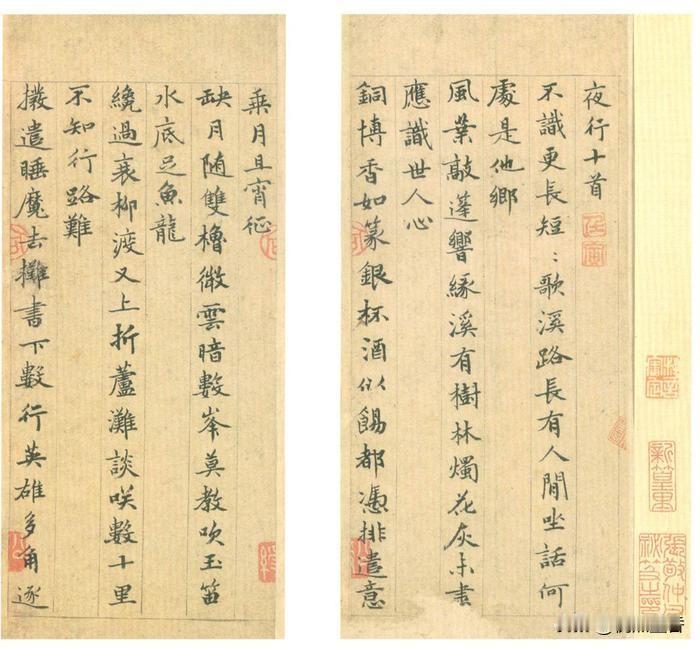 夜行十首
不識更長短：歌溪路長有人閒坐話何
處是他鄉
風葉敲蓬響緣溪有樹林燭花灰未畫
應識世人心
銅博香如篆銀杯酒似餳都憑排遣意
乘月且宵征
缺月随雙櫓微雲暗數峯莫教吹玉笛
水底足魚龍
纔過衰柳渡又上折蘆灘談咲數十里
不知行路難
撥遣睡魔去攤書下數行英雄多角逐